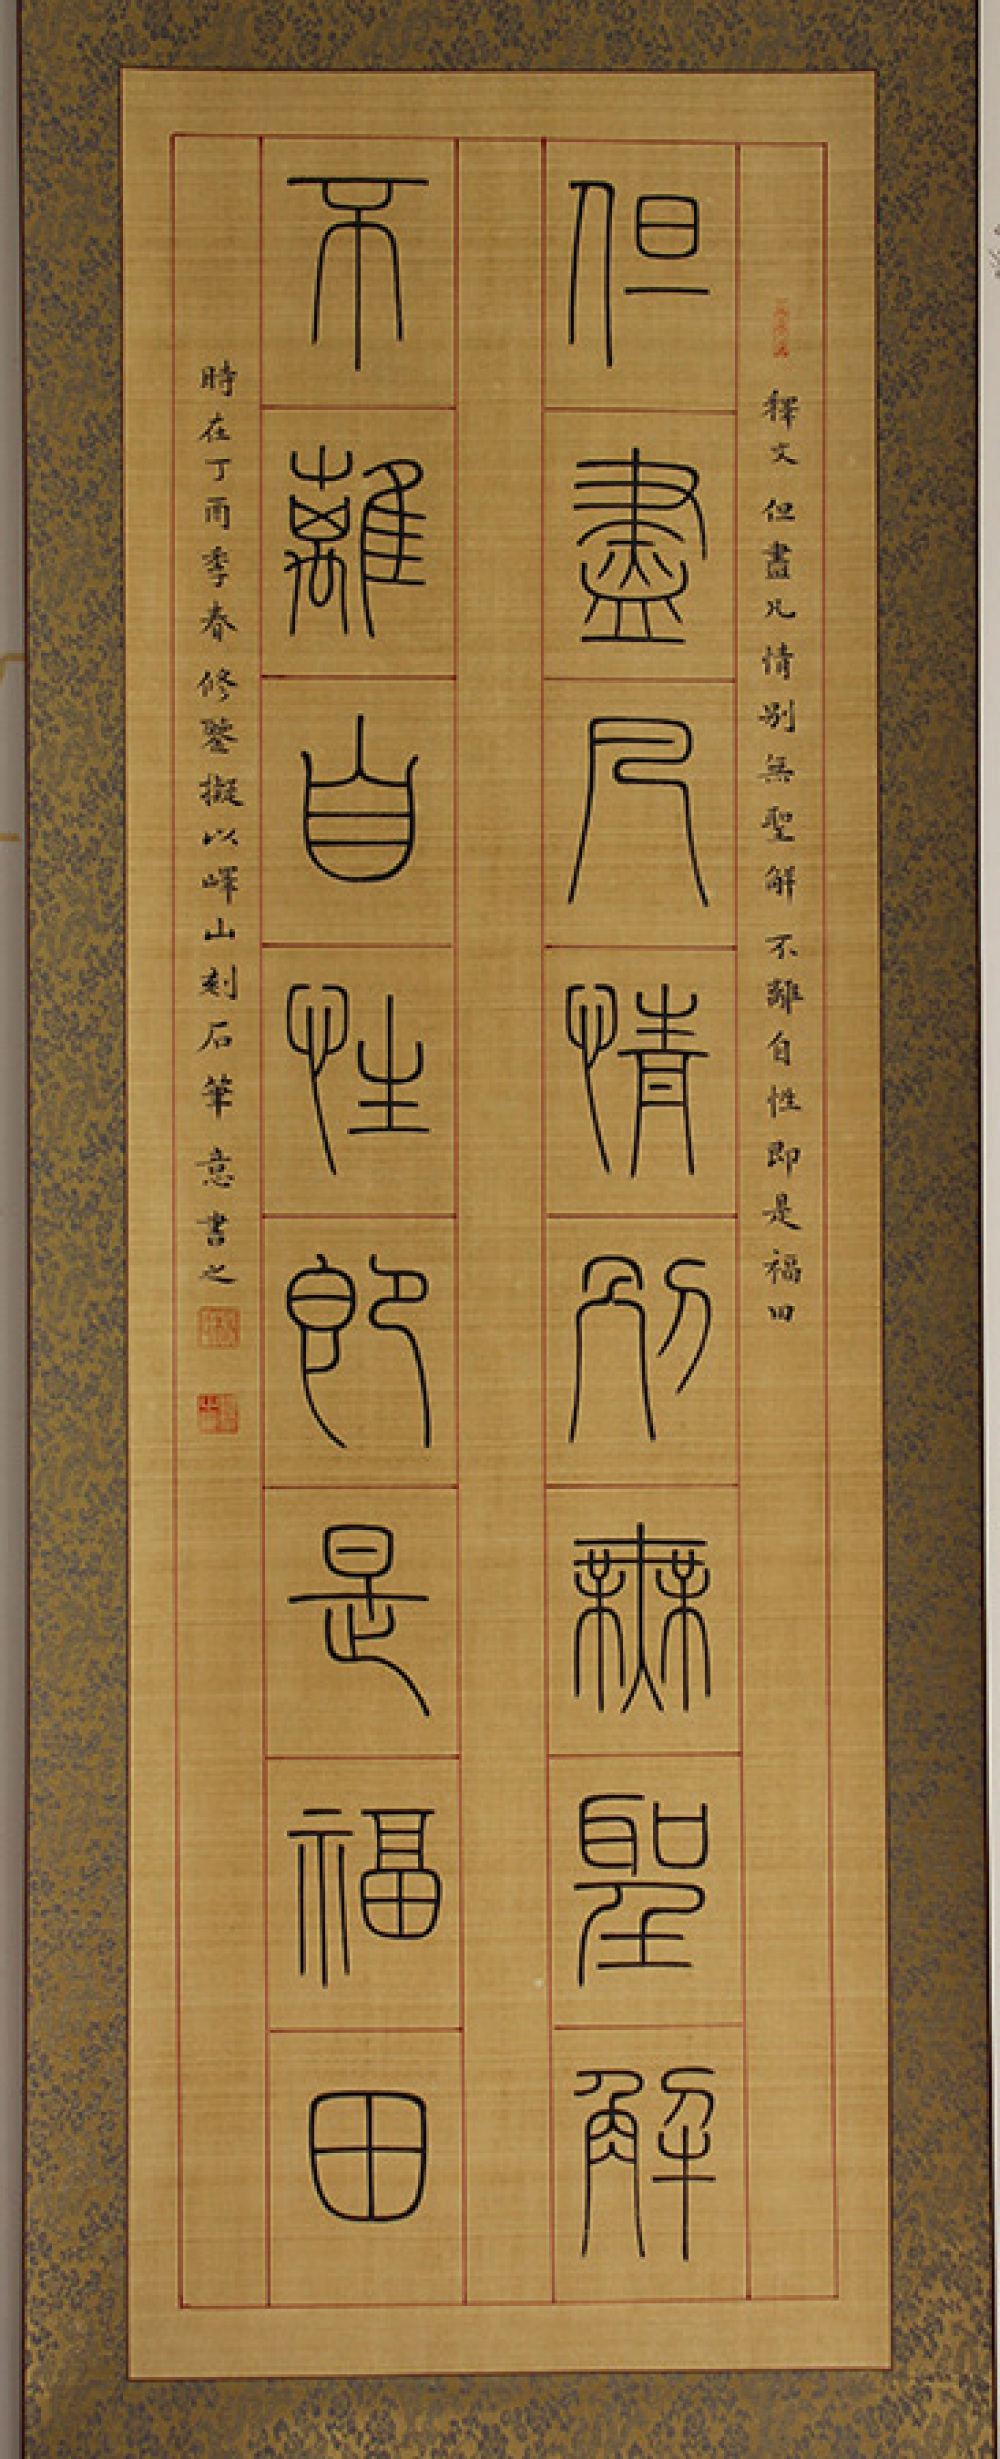 釋文 但盡凡情別無聖解 不離自性即是福田
但盡凡情別無聖解
不離自性即是福田
時在丁酉季春修鑒擬以嶧山刻石筆意書之